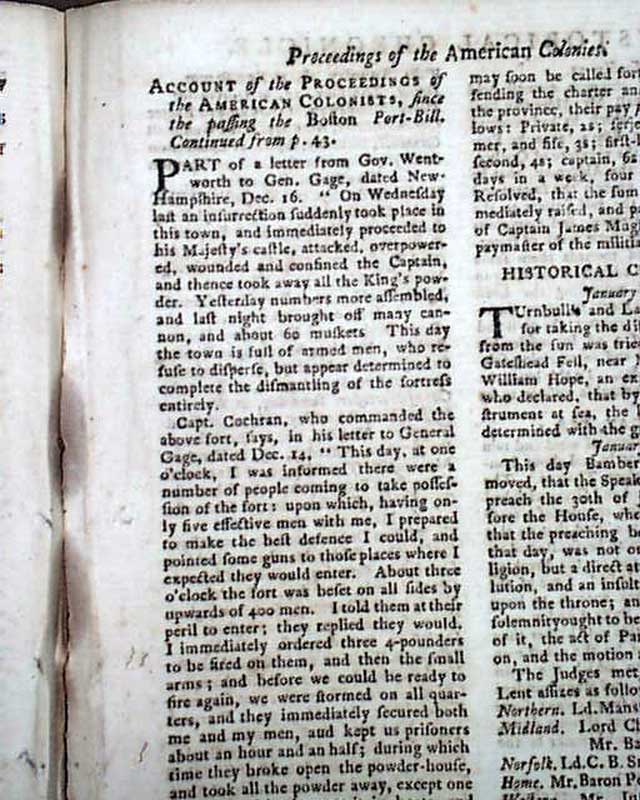 Proceedings of the American Colonies.
ACCOUNT of the PROCEEDINGS of
the AMERICAN COLONISTS, ſince
the paſſing the Boſton Port-Bill.
Continued from p. 43.
PART of a letter from Gov. Went-
worth to Gen. Gage, dated New-
Hampſhire, Dec. 16. “ On Wedneſday
laſt an inſurrection ſuddenly took place in
this town, and immediately proceeded to
his Majeſty's caſtle, attacked, overpower-
ed, wounded and confined the Captain,
and thence took away all the King's pow-
der. Yeſterday numbers more aſſembled,
and laſt night brought off many can-
non, and about 60 muſkets This day
the town is full of armed men, who re-
fuſe to diſperſe, but appear determined to
complete the diſmantling of the fortreſs
entirely.
Capt. Cochran, who commanded the
above fort, ſays, in his letter to General
Gage, dated Dec. 14, “ This day, at one
o'clock, I was informed there were a
number of people coming to take poſſeſ-
ſion of the fort: upon which, having on-
ly five effective men with me, I prepared
to make the beſt defence I could, and
pointed ſome guns to thoſe places where I
expected they would enter. About three
o'clock the fort was beſet on all ſides by
upwards of 400 men. I told them at their
peril to enter; they replied they would.
I immediately ordered three 4-pounders
to be fired on them, and then the ſmall
arms; and before we could be ready to
fire again, we were ſtormed on all quar-
ters, and they immediately ſecured both
me and my men, aud kept us priſoners
about an hour and an half; during which
time they broke open the powder-houſe,
and took all the powder away, except one
may ſoon be called
ſending the charter
the province, their pay
lows: Private, 2s;
mer, and fife, 3s;
ſecond, 4s; captain,
days in a week, four
Reſolved, that the ſum
mediately raiſed, and
of Captain James
paymaſter of the
HISTORICAL
January
TUrnbull and
for taking the
from the ſun was
Gateſhead Fell, near
William Hope, an
who declared, that by
ſtrument at ſea, the
determined with the
This day Bamber
moved, that the
preach the 30th of
fore the Houſe,
that the preaching
that day, was not
ligion, but a direct
lution, and an
upon the throne;
ſolemnity ought to be
of it, the act of
on, and the motion
The Judges met
Lent aſſizes as
Northern. Ld.
Midland. Lord
Mr.
Norfolk. Ld.C. B.
Home. Mr. Baron
Mr.